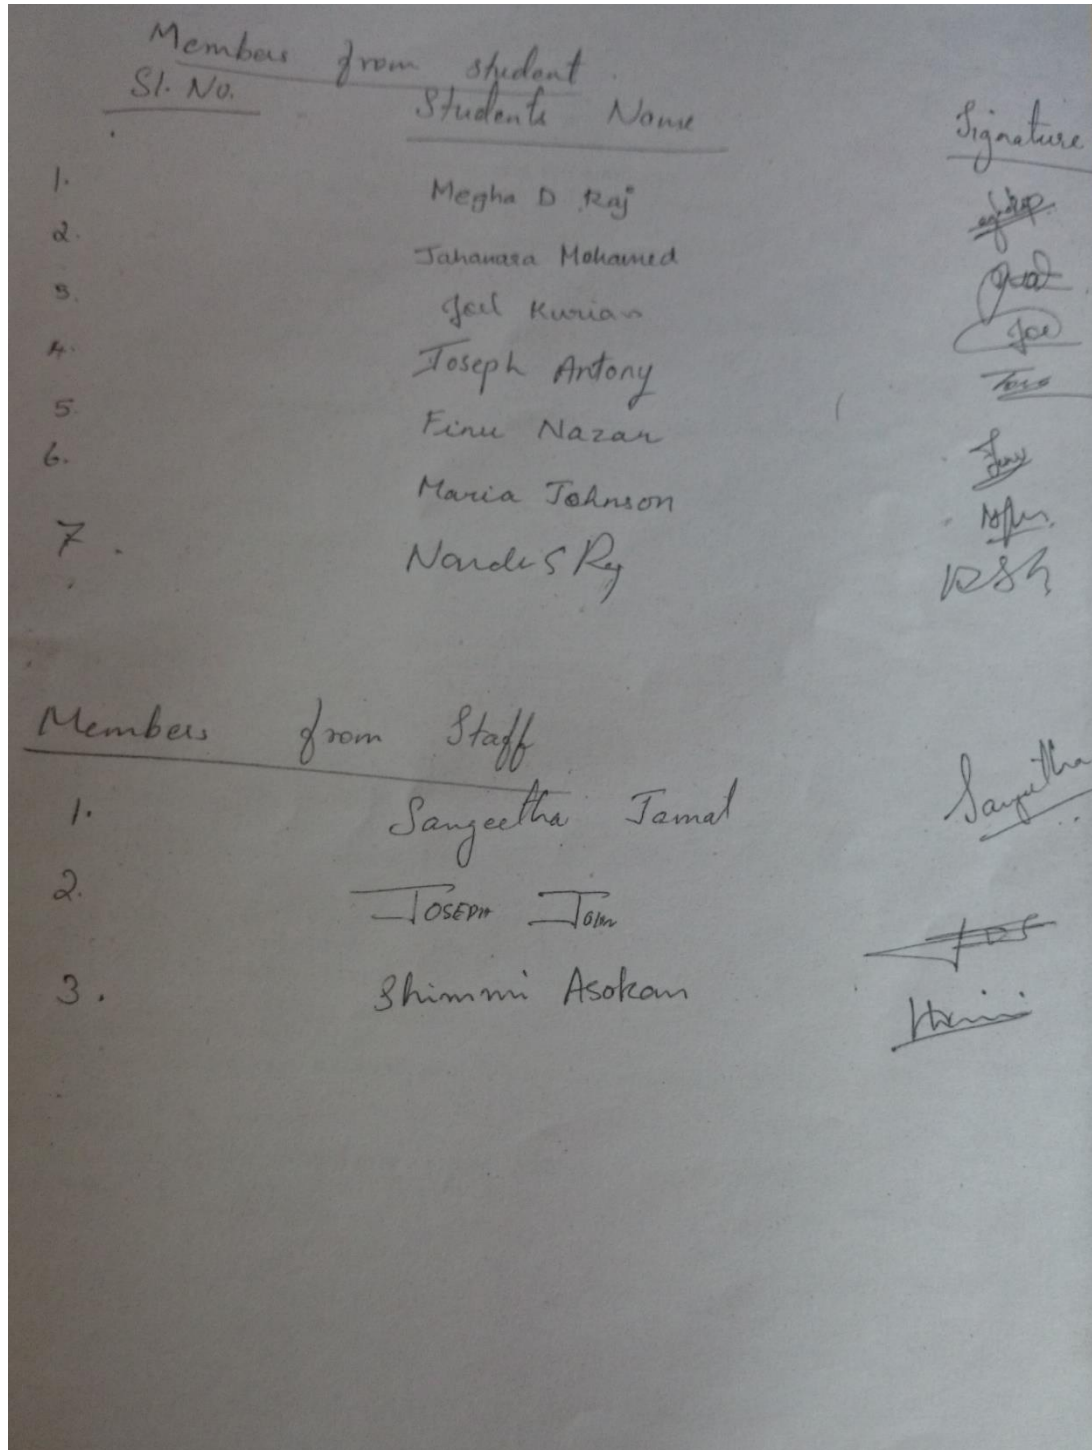 Members from student
Sl. No. Students Name Signature
1. Megha D Raj
2. Jahanara Mohamed
3. Joel Kurian Joel
4. Joseph Antony
5. Finu Nazar Finu
6. Maria Johnson
7. S Raj
Members from Staff
1. Sangeetha Jamal Sangeetha
2. JOSEPH
3. Shimmi Asokan